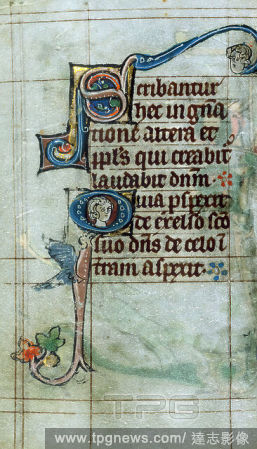 Scribantur
hec in gña
tione altera et
ipl̃s qui creabit̃
laudabit dñm.
Quia ꝓspexit
de excelso sc̃o
suo dñs de celo ĩ
t̃ram aspexit.
TPG
www.tpgnews.com/ 達志影像